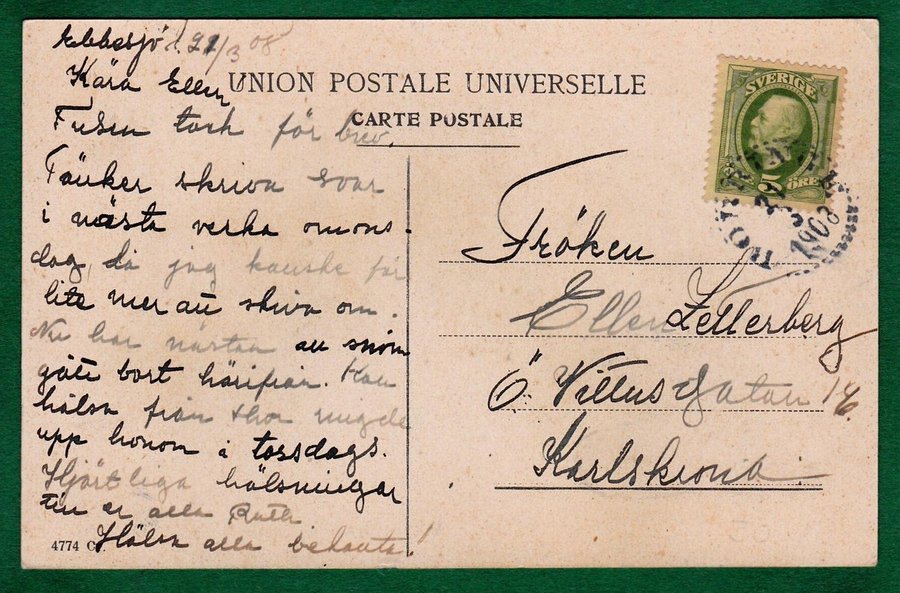 Ebbesjö d. 21/3 08
Kära Ellen
UNION POSTALE UNIVERSELLE
CARTE POSTALE
Tusen tack för brev.
Tänker skriva svar
i nästa vecka om ons-
dag, då jag kanske får
lite mer att skiva om.
Nu har nästan all snön
gått bort härifrån. Kan
hälsa från thor
upp honom i torsdags.
Hjärtliga hälsningar
till er alla Ruth
Hälsa alla bekanta!
4774 C.
SVERIGE
5 ÖRE
1908
Fröken
Ellen Zetterberg
Ö. Vittus Gatan 16
Karlskrona